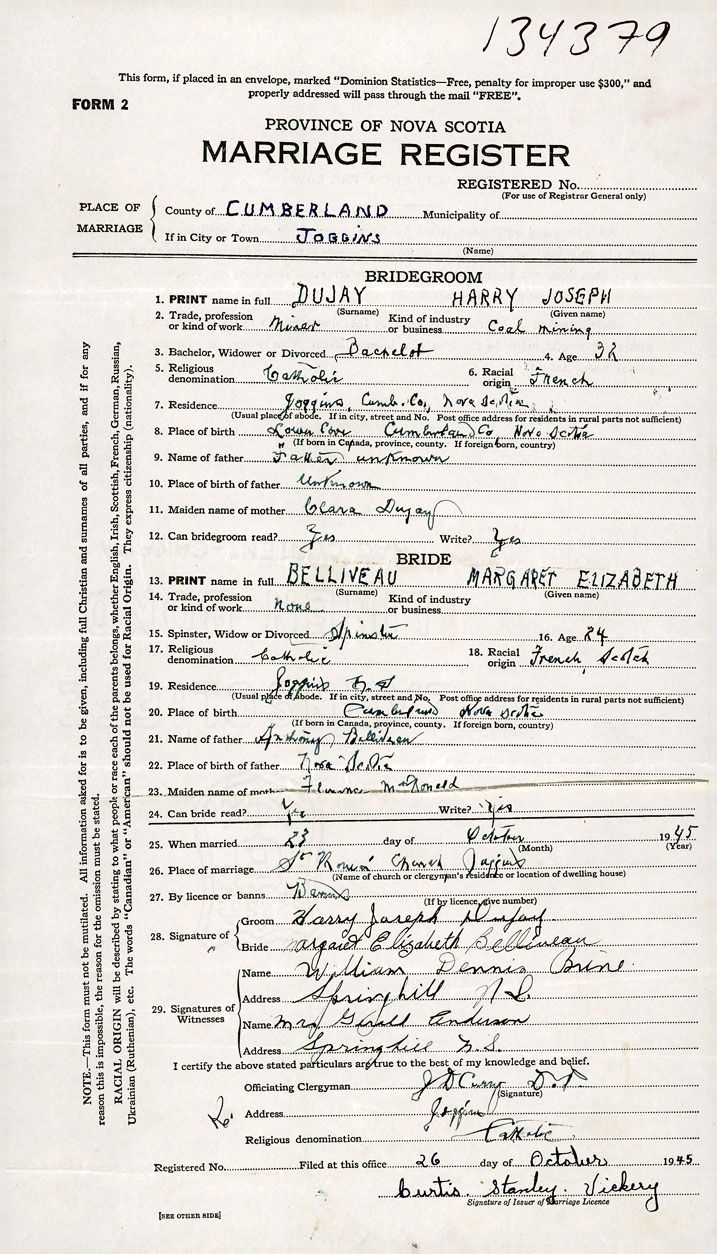 134379
This form, if placed in an envelope, marked "Dominion Statistics—Free, penalty for improper use $300," and
properly addressed will pass through the mail "FREE".
FORM 2
PROVINCE OF NOVA SCOTIA
MARRIAGE REGISTER
REGISTERED No.
(For use of Registrar General only)
PLACE OF MARRIAGE
County of CUMBERLAND Municipality of
If in City or Town JOGGINS
(Name)
BRIDEGROOM
1. PRINT name in full DUJAY HARRY JOSEPH
(Surname) (Given name)
2. Trade, profession or kind of work Miner Kind of industry or business Coal mining
3. Bachelor, Widower or Divorced Bachelor 4. Age 32
5. Religious denomination Catholic 6. Racial origin French
7. Residence Joggins, Cumb. Co, Nova Scotia
(Usual place of abode. If in city, street and No. Post office address for residents in rural parts not sufficient)
8. Place of birth Lower Cove Cumberland Co, Nova Scotia
(If born in Canada, province, county. If foreign born, country)
9. Name of father Father unknown
10. Place of birth of father Unknown
11. Maiden name of mother Clara Dujay
12. Can bridegroom read? Yes Write? Yes
BRIDE
13. PRINT name in full BELLIVEAU MARGARET ELIZABETH
(Surname) (Given name)
14. Trade, profession or kind of work None Kind of industry or business
15. Spinster, Widow or Divorced Spinster 16. Age 24
17. Religious denomination Catholic 18. Racial origin French, Scotch
19. Residence Joggins N.S
(Usual place of abode. If in city, street and No. Post office address for residents in rural parts not sufficient)
20. Place of birth Nova Scotia
(If born in Canada, province, county. If foreign born, country)
21. Name of father Anthony Belliveau
22. Place of birth of father Nova Scotia
23. Maiden name of moth Florence McDonald
24. Can bride read? Yes Write? Yes
25. When married 23 day of October 1945
(Month) (Year)
26. Place of marriage St Church Joggins
(Name of church or clergyman's residence or location of dwelling house)
27. By licence or banns Banns
(If by licence, give number)
28. Signature of
Groom Harry Joseph Dujay
Bride Margaret Elizabeth Belliveau
29. Signatures of Witnesses
Name William Dennis Brine
Address Springhill N.S.
Name Mrs Anderson
Address Springhill N.S.
I certify the above stated particulars are true to the best of my knowledge and belief.
Officiating Clergyman J D Curry
(Signature)
Address Joggins
Religious denomination Catholic
Registered No. Filed at this office 26 day of October 1945
Curtis Stanley Vickery
Signature of Issuer of Marriage Licence
[SEE OTHER SIDE]
NOTE.—This form must not be mutilated. All information asked for is to be given, including full Christian and surnames of all parties, and if for any
reason this is impossible, the reason for the omission must be stated.
RACIAL ORIGIN will be described by stating to what people or race each of the parents belongs, whether English, Irish, Scottish, French, German, Russian,
Ukrainian (Ruthenian), etc. The words "Canadian" or "American" should not be used for Racial Origin. They express citizenship (nationality).